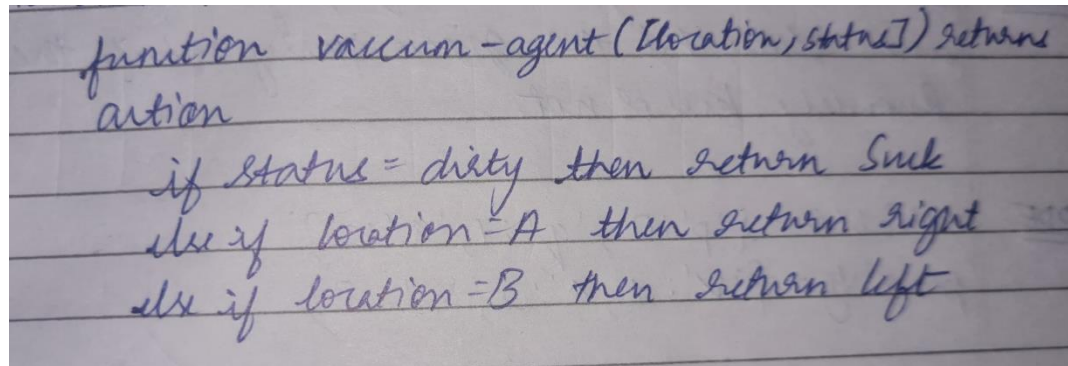 function vaccum-agent([location, status]) returns
action
if status = dirty then return Suck
else if location = A then return right
else if location = B then return left